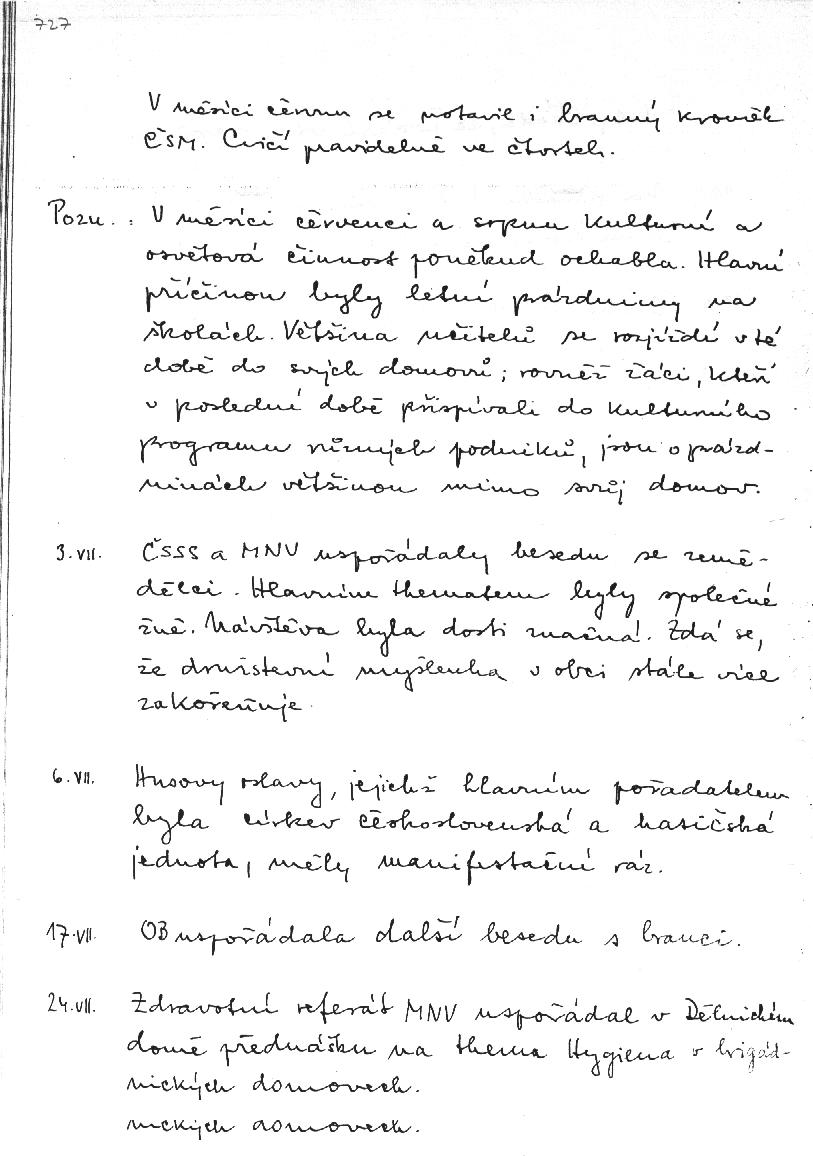 727
V měsíci červnu se ustavil i branný kroužek
ČSM. Cvičí pravidelně ve čtvrtek.
Pozn. : V měsíci červenci a srpnu kulturní a
osvětová činnost poněkud ochabla. Hlavní
příčinou byly letní prázdniny na
školách. Většina učitelů se rozjíždí v té
době do svých domovů; rovněž žáci, kteří
v poslední době přispívali do kulturního
programu různých podniků, jsou o prázd-
ninách většinou mimo svůj domov.
3. VII. ČSSS a MNV uspořádaly besedu se země-
dělci. Hlavním thematem byly společné
žně. Návštěva byla dosti značná. Zdá se,
že družstevní myšlenka v obci stále více
zakořeňuje.
6. VII. Husovy oslavy, jejichž hlavním pořadatelem
byla církev československá a hasičská
jednota, měly manifestační ráz.
17. VII. OB uspořádala další besedu s branci.
24. VII. Zdravotní referát MNV uspořádal v Dělnickém
domě přednášku na thema Hygiena v brigád-
nických domovech.
nických domovech.